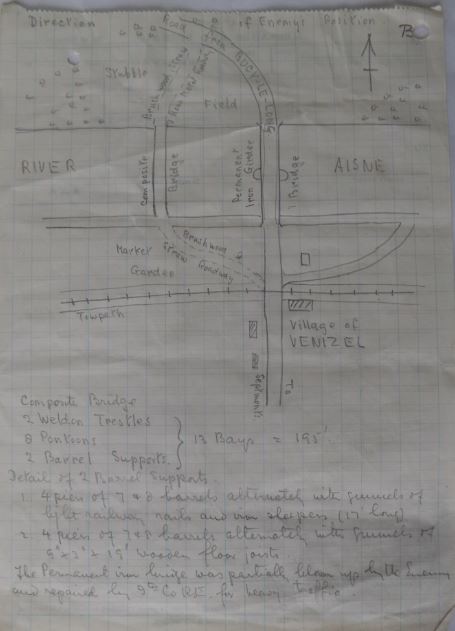 Direction of Enemy's Position
B
Road
from
BUCY-LE-LONG
Stubble
Field
Brushwood Straw
& Road Metal
RIVER
AISNE
Composite
Bridge
Permanent
Iron Girder
Bridge
Market
Garden
Brushwood &
Straw Roadway
Towpath
Village of
VENIZEL
To
Composite Bridge
2 Weldon Trestles
8 Pontoons
2 Barrel Supports.
13 Bays = 195'.
Detail of 2 Barrel Supports.
1. 4 piers of 7 & 8 barrels alternately with gunnels of
light railway rails and iron sleepers (17' long)
2. 4 piers of 7 & 8 barrels alternately with gunnels of
9" x 3" x 19' wooden floor joists
The Permanent iron bridge was partially blown up by the Enemy
and repaired by 9th Co R.E. for heavy traffic